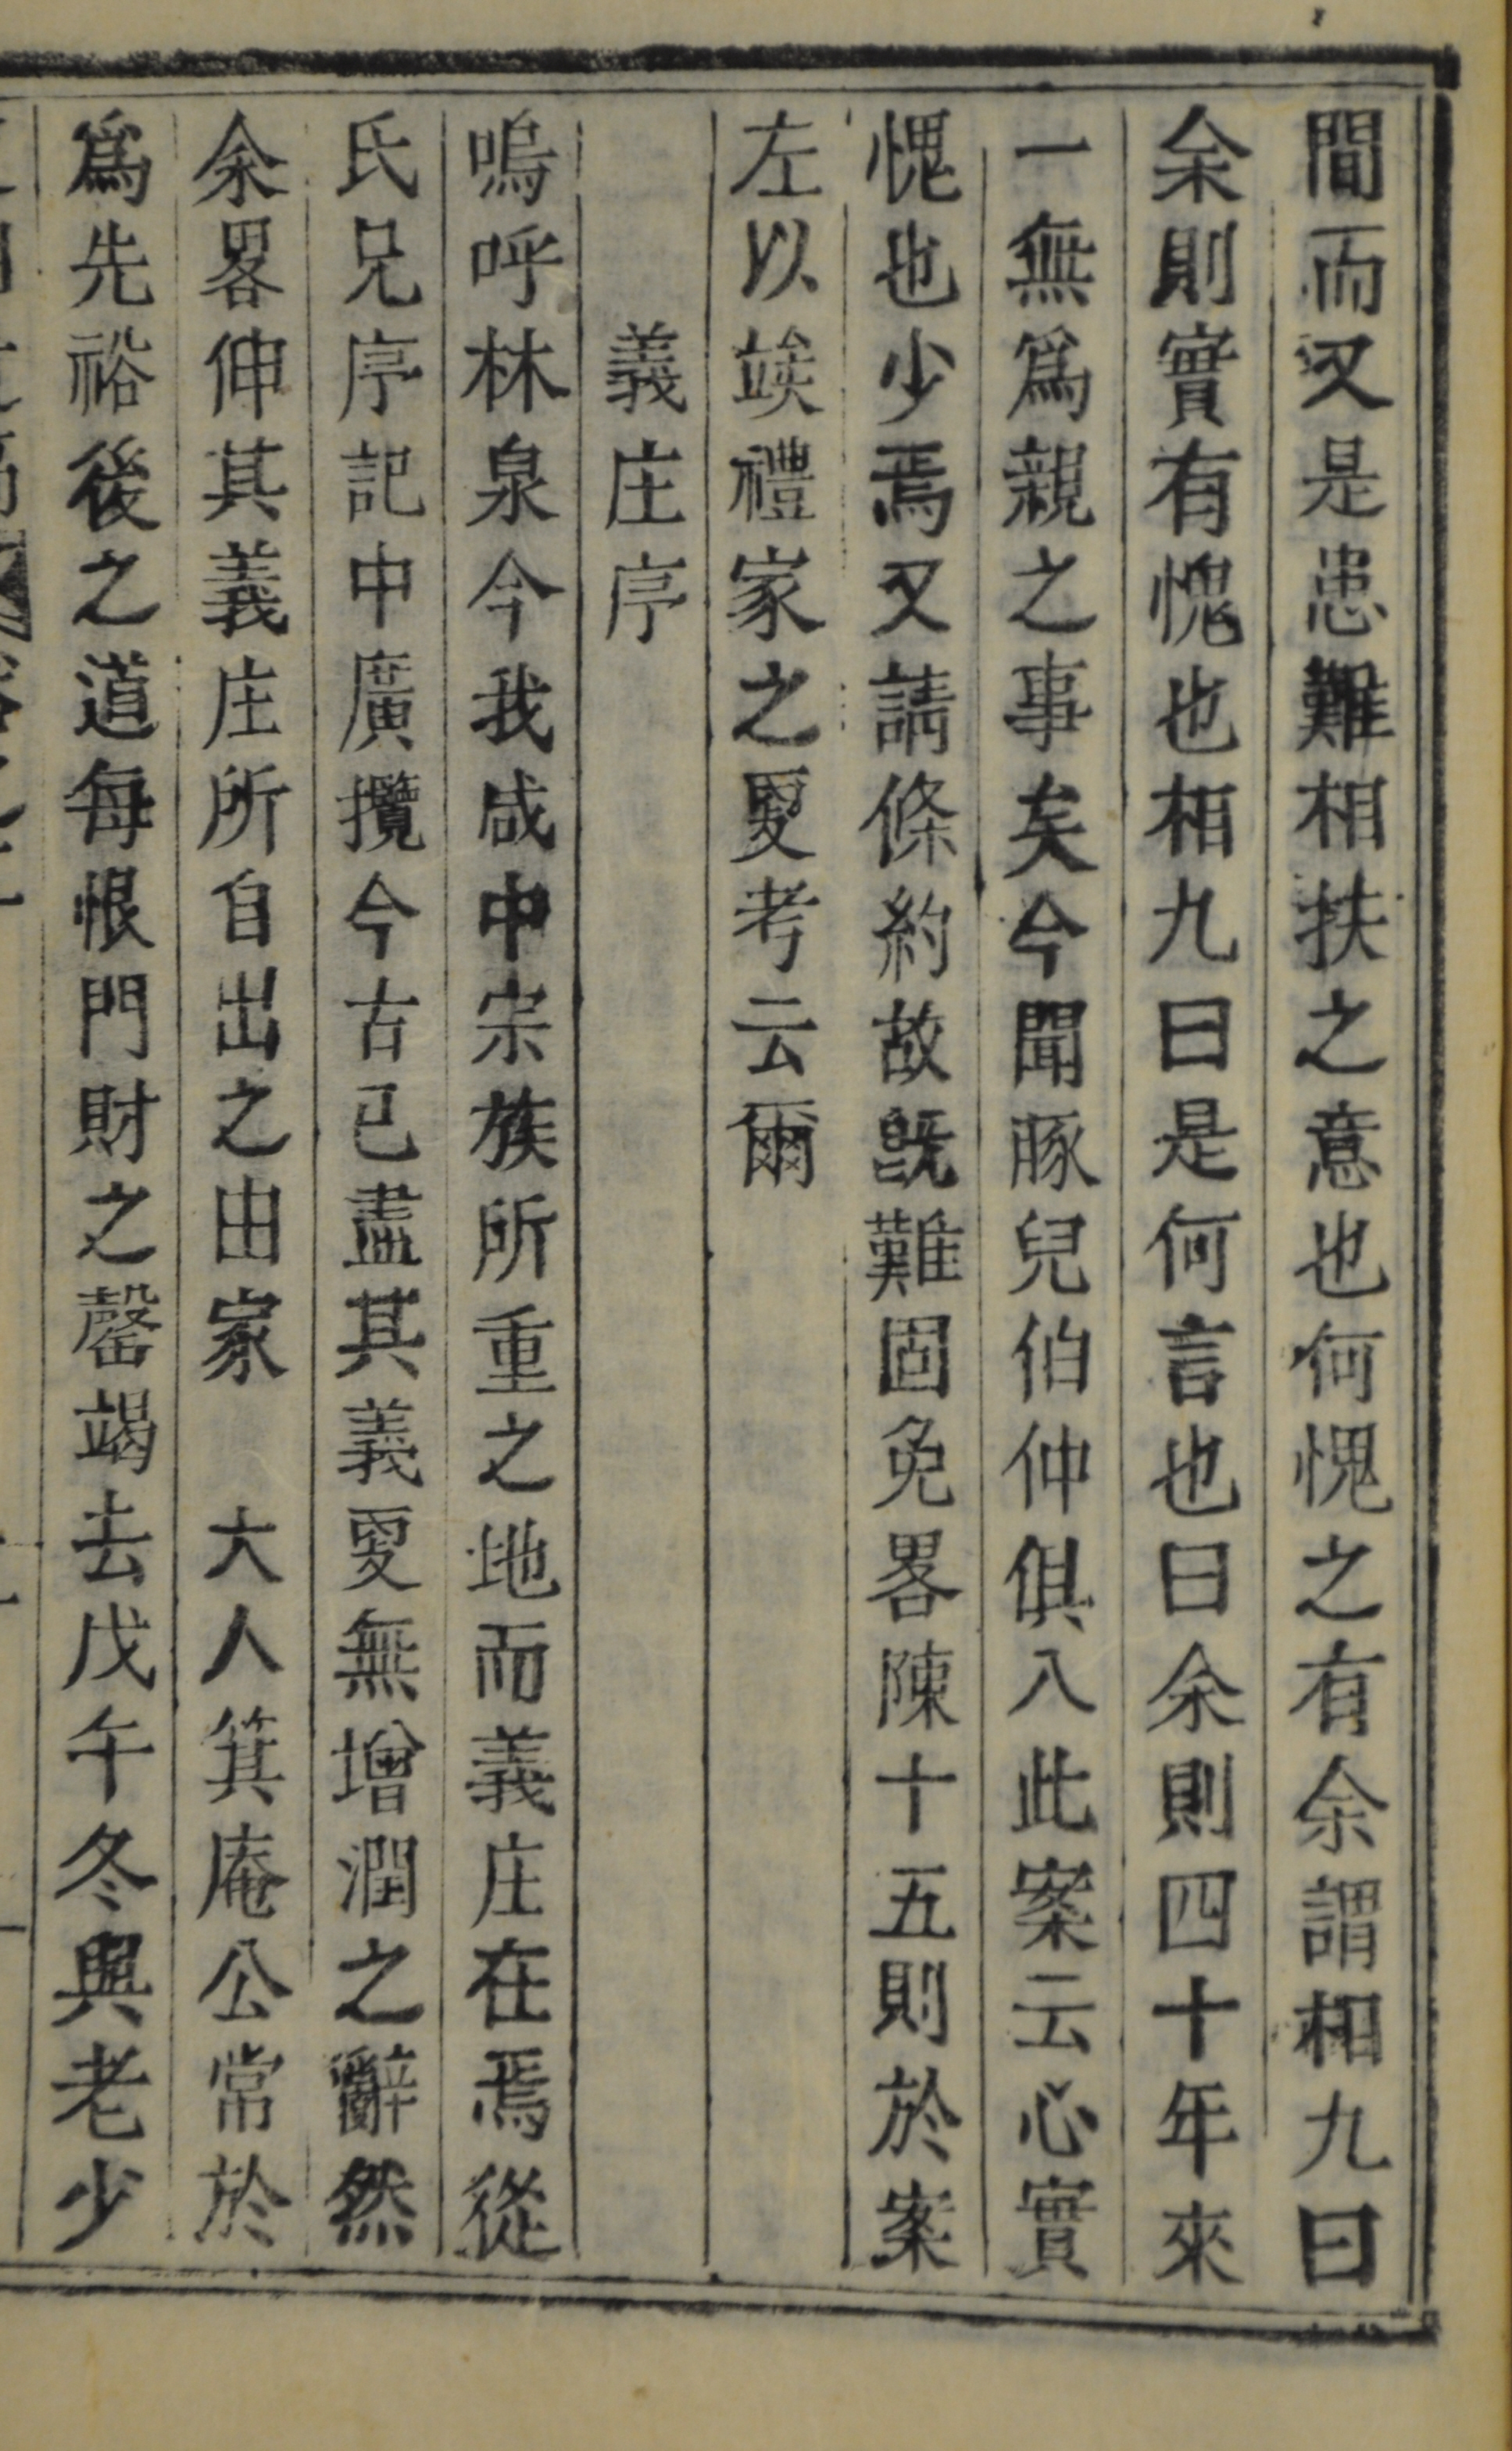 間而又是患難相扶之意也何愧之有余謂相九曰
余則實有愧也相九曰是何言也曰余則四十年來
一無爲親之事矣今聞豚兒伯仲俱入此案云心實
愧也少焉又請條約故旣難固免畧陳十五則於案
左以竢禮家之更考云爾
義庄序
嗚呼林泉今我咸中宗族所重之地而義庄在焉從
氏兄序記中廣攬今古已盡其義更無增潤之辭然
余畧伸其義庄所自出之由家 大人箕庵公常於
爲先裕後之道每恨門財之罄竭去戊午冬與老少